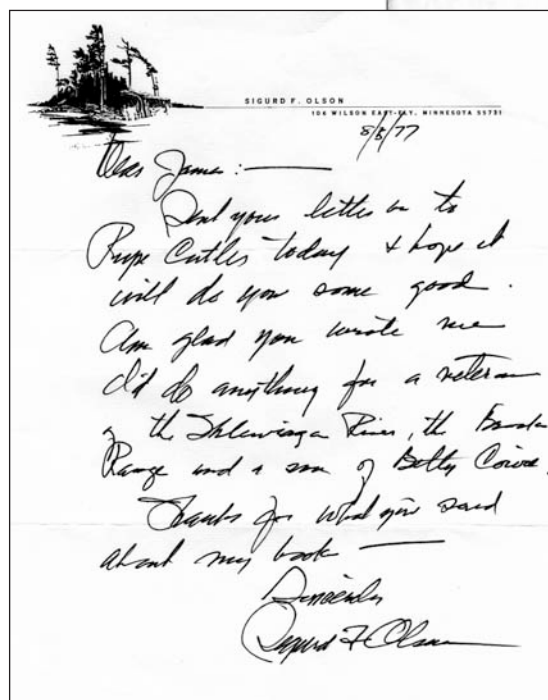 SIGURD F. OLSON
106 WILSON EAST-ELY, MINNESOTA 55731
8/8/77
Dear James:
Sent your letter on to
Rupe Cutler today & hope it
will do you some good.
Am glad you wrote me
I'd do anything for a veteran
of the River, the Brooks
Range and a son of Betty
Thanks for what you said
about my book
Sincerely
Sigurd F Olson